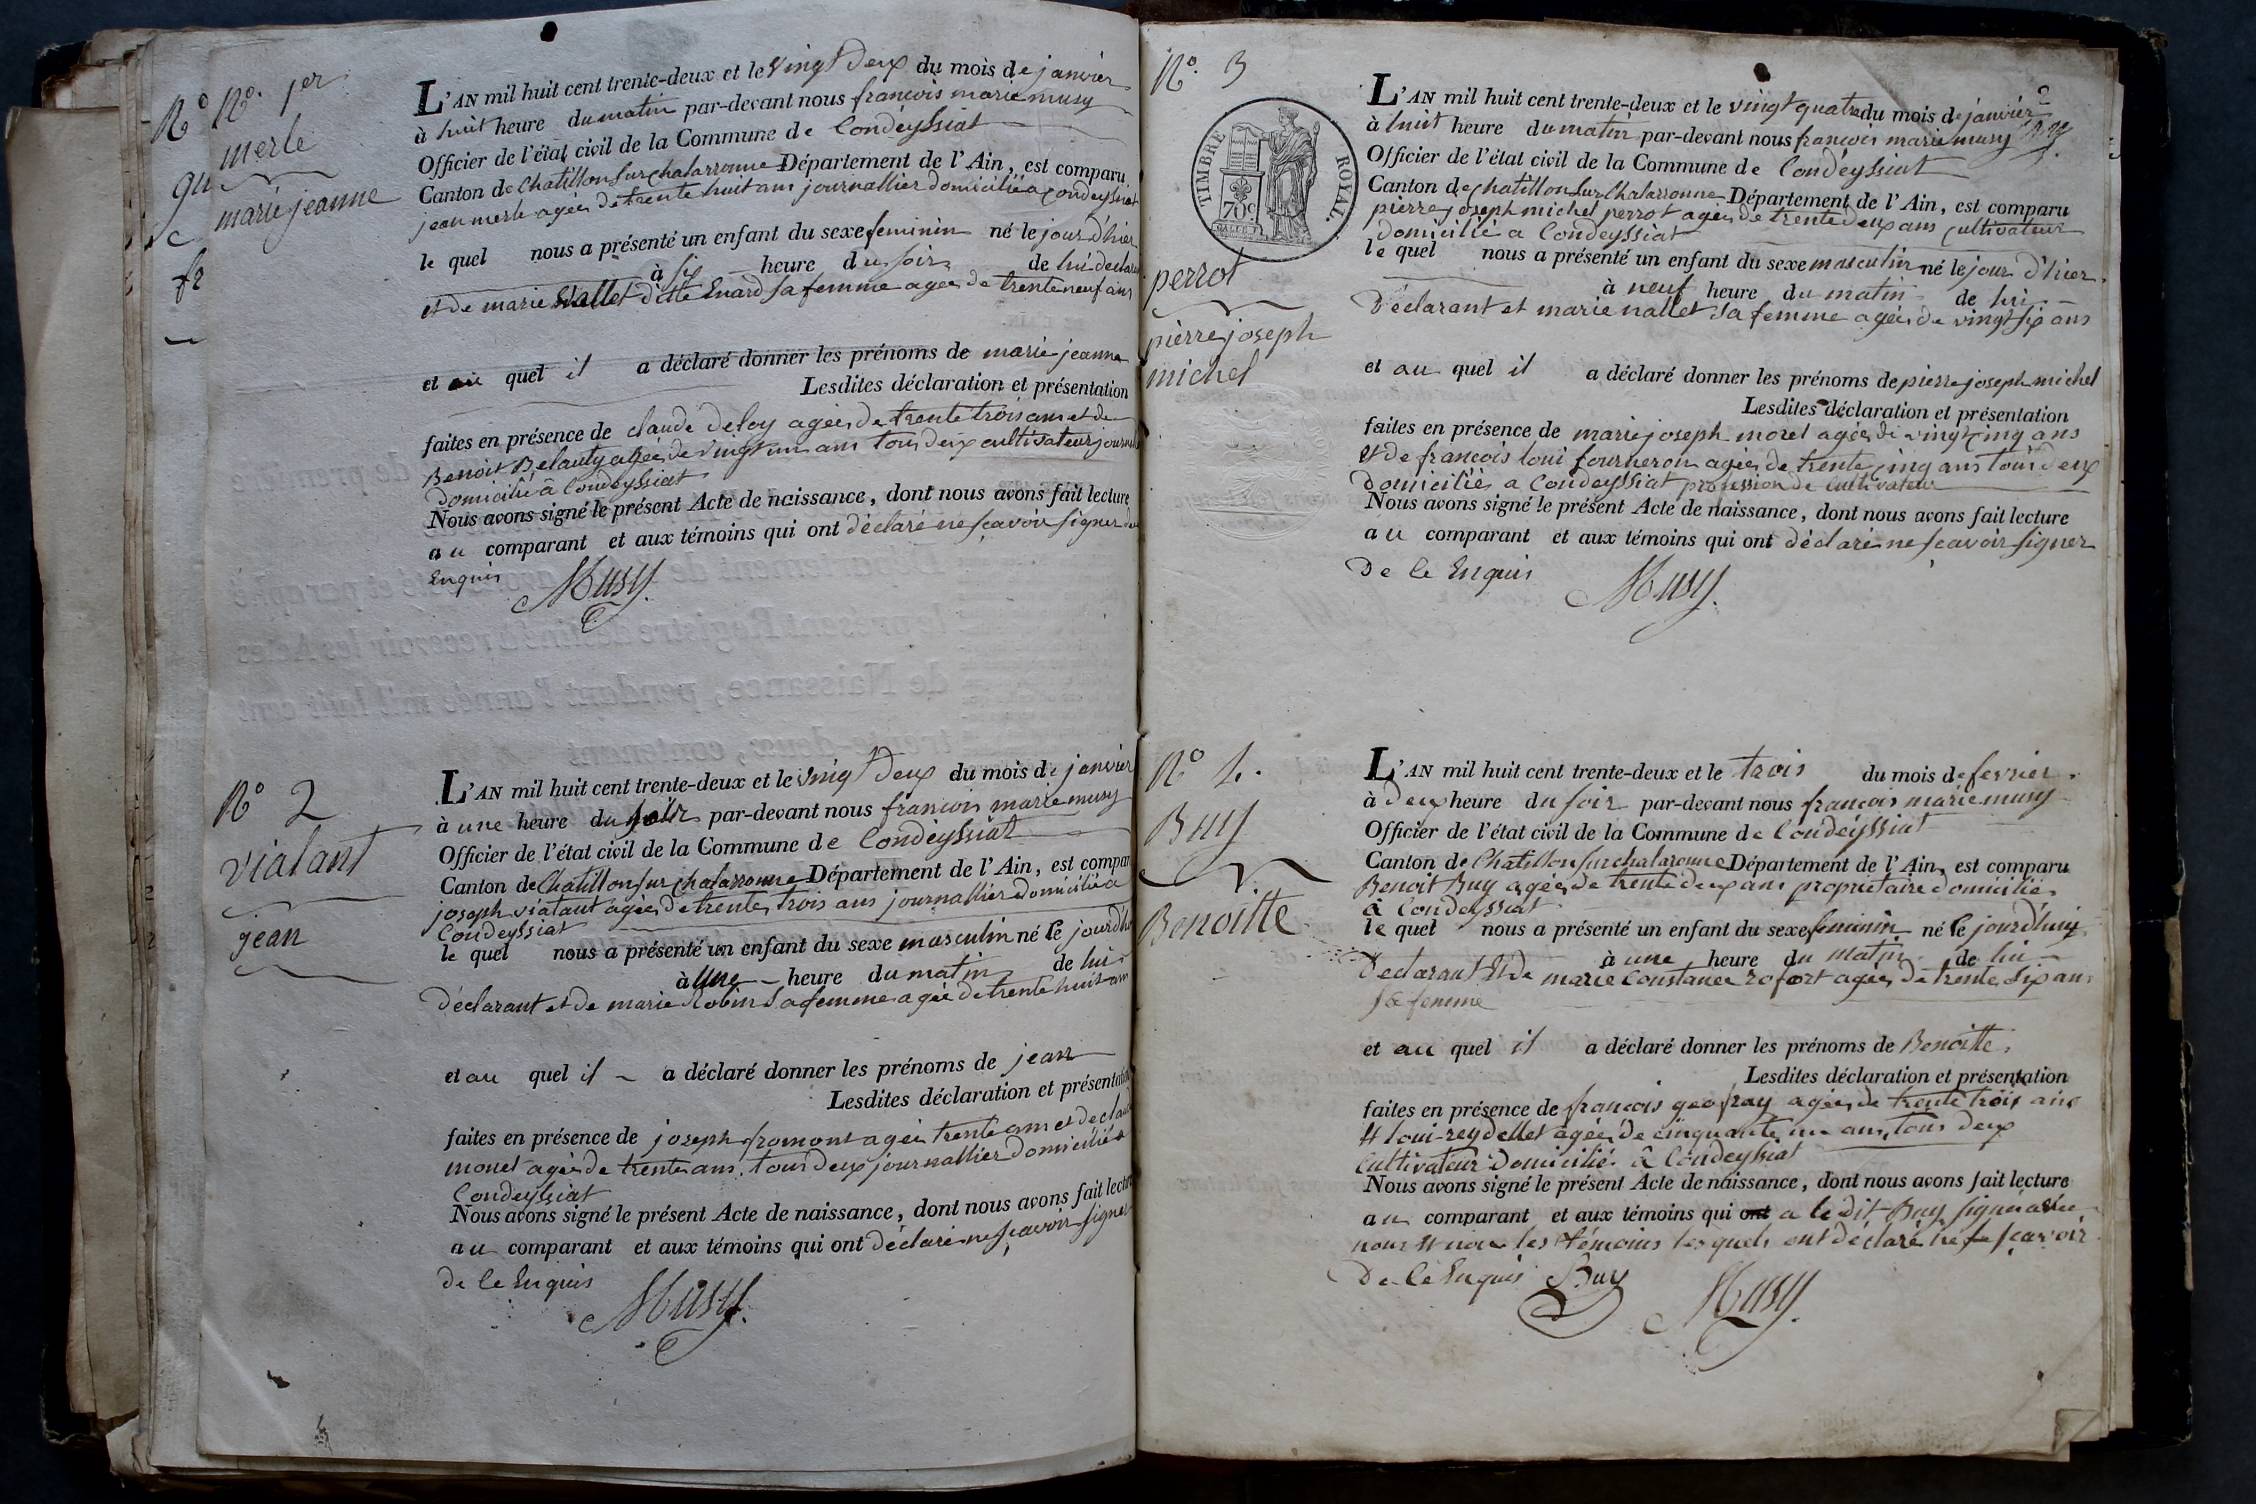 No. 1er
merle
marie jeanne
No
qu
fr
L'AN mil huit cent trente-deux et le vingt deux du mois de janvier
à huit heure du matin par-devant nous francois marie musy
Officier de l'état civil de la Commune de Condeyssiat
Canton de Chatillon sur chalaronne Département de l'Ain, est comparu
jean merle agée de trente huit ans journallier domicilié a Condeyssiat
le quel nous a présenté un enfant du sexe feminin né le jour d'hier
à six heure du soir de lui déclarant
et de marie dite Enard sa femme agée de trente neuf ans
et au quel il a déclaré donner les prénoms de marie jeanne
Lesdites déclaration et présentation
faites en présence de claude deloy agée de trente trois ans et de
Benoit Belauty agée de vingt un ans tous deux cultivateur
Domicilié à Condeyssiat
Nous avons signé le présent Acte de naissance, dont nous avons fait lecture
au comparant et aux témoins qui ont déclaré ne scavoir signer de
Enquis Musy.
No 2
viatant
jean
L'AN mil huit cent trente-deux et le vingt deux du mois de janvier
à une heure du soir par-devant nous francois marie musy
Officier de l'état civil de la Commune de Condeyssiat
Canton de Chatillon sur chalaronne Département de l'Ain, est compar
joseph viatant agée de trente trois ans journallier domicilié a
Condeyssiat
le quel nous a présenté un enfant du sexe masculin né le jour d'h
à une heure du matin de lui
déclarant et de marie Robin sa femme agée de trente huit ans
et au quel il a déclaré donner les prénoms de jean
Lesdites déclaration et présentation
faites en présence de joseph fromont agée trente ans et de claude
monet agée de trente ans tous deux journallier domicilié a
Condeyssiat
Nous avons signé le présent Acte de naissance, dont nous avons fait lecture
au comparant et aux témoins qui ont déclaré ne scavoir signer
de ce Enquis Musy.
No. 3
2
TIMBRE ROYAL.
70c
perrot
pierre joseph
michel
L'AN mil huit cent trente-deux et le vingt quatre du mois de janvier
à huit heure du matin par-devant nous françois marie musy
Officier de l'état civil de la Commune de Condeyssiat
Canton de chatillon sur Chalaronne Département de l'Ain, est comparu
pierre joseph michel perrot agée de trente deux ans cultivateur
domicilié a Condeyssiat
le quel nous a présenté un enfant du sexe masculin né le jour d'hier
à neuf heure du matin de lui
Déclarant et marie nallet sa femme agée de vingt six ans
et au quel il a déclaré donner les prénoms de pierre joseph michel
Lesdites déclaration et présentation
faites en présence de marie joseph morel agée de vingt cinq ans
et de françois loui fourneron agée de trente cinq ans tous deux
domiciliés a Condeyssiat profession de Cultivateur
Nous avons signé le présent Acte de naissance, dont nous avons fait lecture
au comparant et aux témoins qui ont déclaré ne scavoir signer
De ce Enquis Musy.
No 4.
Buy
Benoitte
L'AN mil huit cent trente-deux et le trois du mois de fevrier
à deux heure du soir par-devant nous françois marie musy
Officier de l'état civil de la Commune de Condeyssiat
Canton de Chatillon sur chalaronne Département de l'Ain, est comparu
Benoit Buy agée de trente deux ans propriétaire domicilié
à Condeyssiat
le quel nous a présenté un enfant du sexe feminin né le jour d'huy
à une heure du matin de lui
Declarant Et de marie Constance rofort agée de trente six ans
sa femme
et au quel il a déclaré donner les prénoms de Benoitte
Lesdites déclaration et présentation
faites en présence de françois geofray agée de trente trois ans
et loui reydellet agée de cinquante un ans tous deux
Cultivateur Domicilié à Condeyssiat
Nous avons signé le présent Acte de naissance, dont nous avons fait lecture
au comparant et aux témoins qui ont a le dit Buy signé avec
nous et non les témoins les quels ont déclaré ne le scavoir
De Cé Enquis Buy Musy.